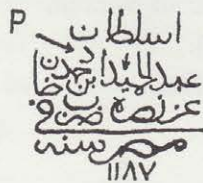 P
اسلطان
عبد الحمید ابن احمد خان
عز نصره ضرب فی
مصر سنه
١١٨٧